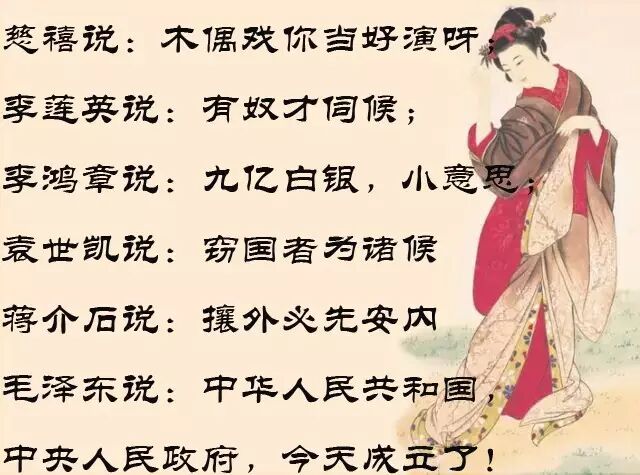 慈禧说：木偶戏你当好演呀；
李莲英说：有奴才伺候；
李鸿章说：九亿白银，小意思；
袁世凯说：窃国者为诸候
蒋介石说：攘外必先安内
毛泽东说：中华人民共和国，
中央人民政府，今天成立了！